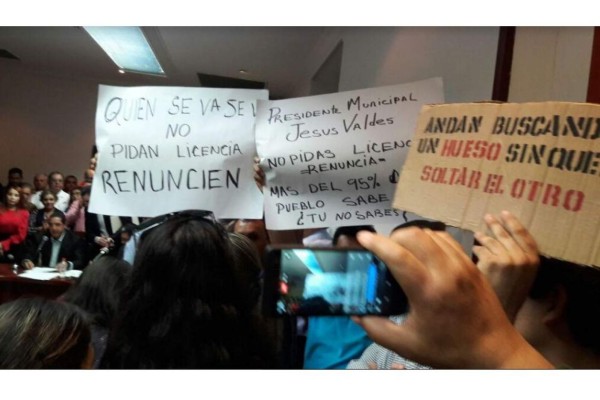 QUIEN SE VA SE V
NO
PIDAN LICENCIA
RENUNCIEN
PRESIDENTE MUNICIPAL
JESUS VALDES
NO PIDAS LICENC
=RENUNCIA=
MAS DEL 95%
PUEBLO SABE
¿TU NO SABES?
ANDAN BUSCAND
UN HUESO SIN QUE
SOLTAR EL OTRO